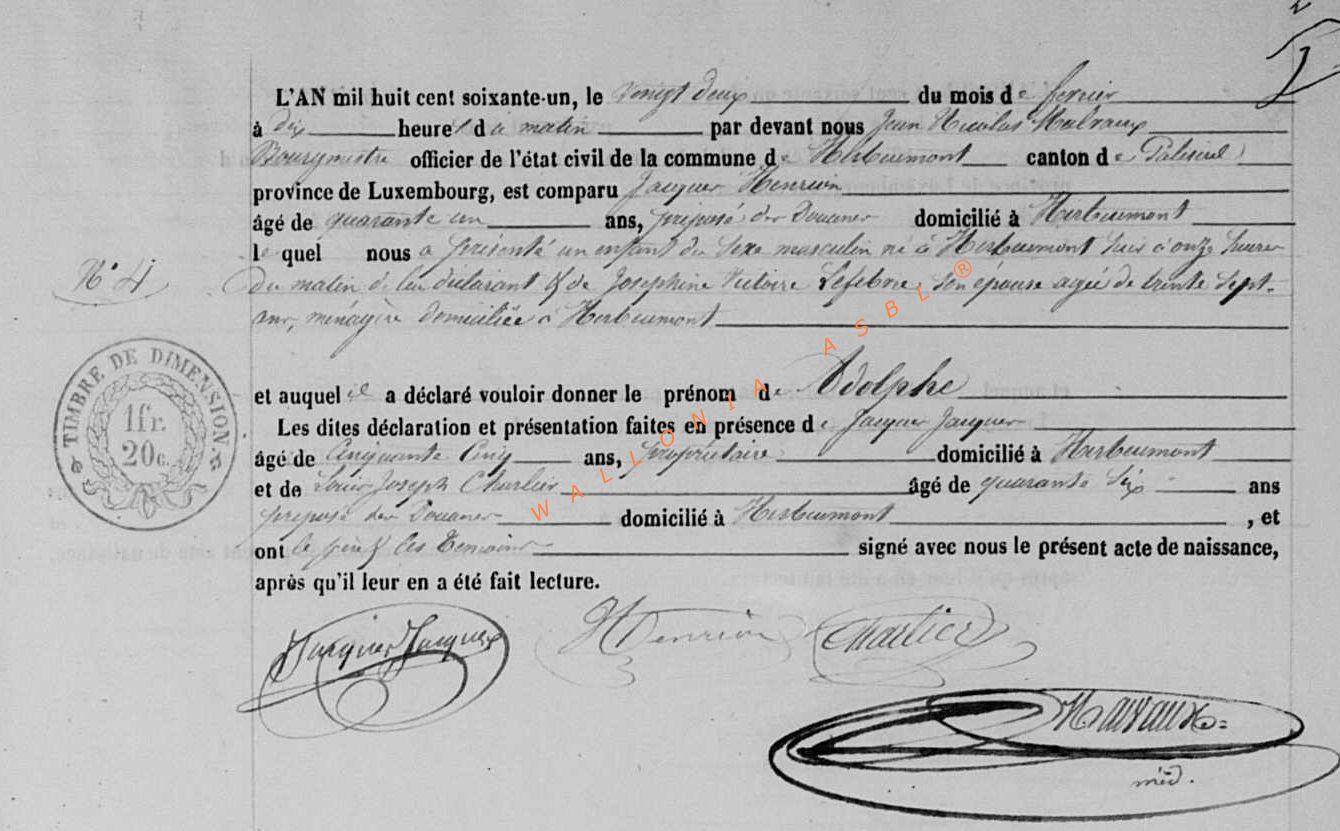 L'AN mil huit cent soixante-un, le vingt deux du mois de fevrier
à dix heures du matin par devant nous Jean Nicolas
Bourgmestre officier de l'état civil de la commune de Herbeumont canton de Paliseul
province de Luxembourg, est comparu Jacques Henrion
âgé de quarante un ans, préposé des Douanes domicilié à Herbeumont
le quel nous a présenté un enfant du sexe masculin né à Herbeumont hier à onze heures
N° 4
du matin de lui déclarant & de Josephine Victoire Lefebvre, son épouse agée de trente sept
ans, ménagère domiciliée à Herbeumont
TIMBRE DE DIMENSION
1 fr.
20 c.
et auquel il a déclaré vouloir donner le prénom de Adolphe
Les dites déclaration et présentation faites en présence de Jacques Jacques
âgé de Cinquante Cinq ans, propriétaire domicilié à Herbeumont
et de Louis Joseph Charlier âgé de quarante six ans
préposé des Douanes domicilié à Herbeumont, et
ont le père & les temoins signé avec nous le présent acte de naissance,
après qu'il leur en a été fait lecture.
Jacques Jacques Henrion Charlier
méd.
WALLONIA ASBL ®